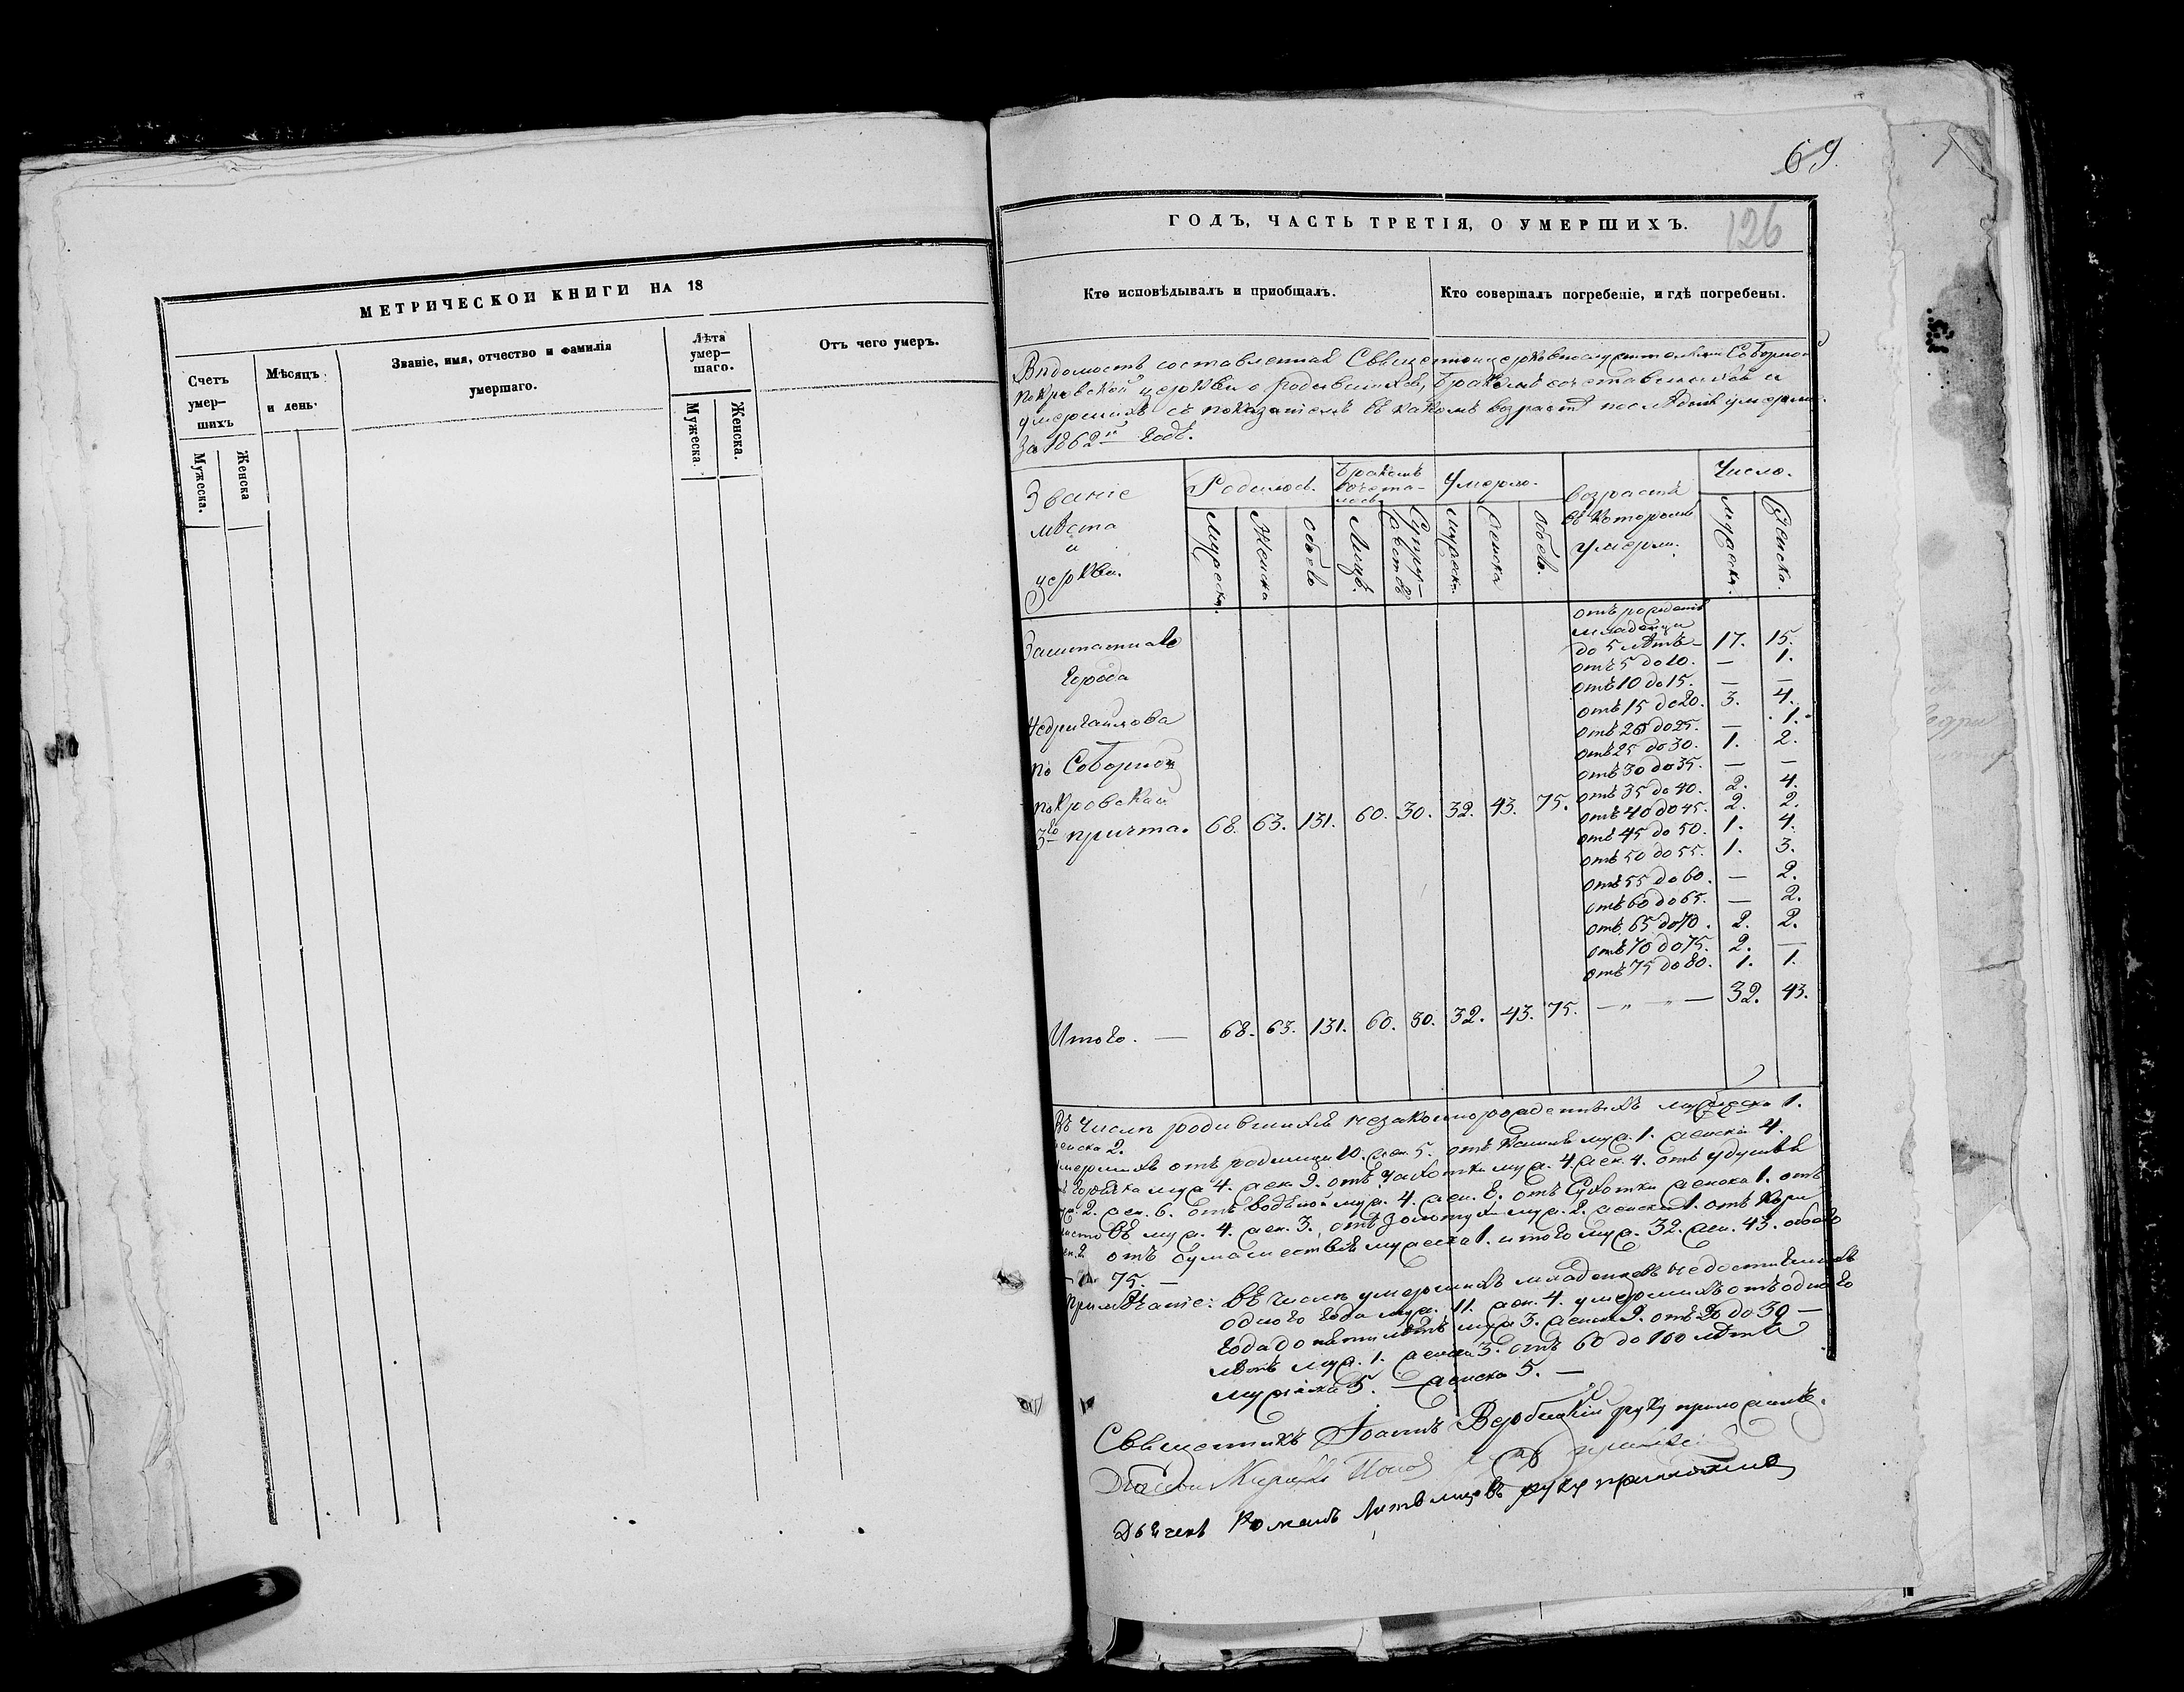 МЕТРИЧЕСКОЙ КНИГИ НА 18
Счетъ умер-шихъ
Мѣсяцъ и день.
Званіе, имя, отчество и фамилія умершаго.
Лѣта умер-шаго.
Отъ чего умеръ.
Мужеска.
Женска
Мужеска.
Женска.
69.
ГОДЪ, ЧАСТЬ ТРЕТІЯ, О УМЕРШИХЪ.
126
Кто исповѣдывалъ и пріобщалъ.
Кто совершалъ погребеніе, и гдѣ погребены.
Вѣдомость составленная Священноцерковнослужителями Соборной
Покровской церкви о родившихся, бракомъ сочетавшихся и
умершихъ съ показаніемъ въ какомъ возрастѣ послѣдніе умерли
за 1862й годъ.
Званіе мѣста и церкви.
Родилось.
Бракомъ сочета-лось
Умерло.
возрастъ въ которомъ умерли.
Число.
Мужеска.
Женска
обоего
Лицъ.
Супру-жествъ
мужеска.
женска
обоего.
мужеска.
Женска.
Заштатнаго
города
Недригайлова
по Соборной
покровской
3го причта. 68. 63. 131. 60. 30. 32. 43. 75.
отъ рожденія
младенцы
до 5 лѣтъ 17. 15.
отъ 5 до 10. — 1.
отъ 10 до 15. — —
отъ 15 до 20. 3. 4.
отъ 20 до 25. — 1.
отъ 25 до 30. 1. 2.
отъ 30 до 35. — —
отъ 35 до 40. 2. 4.
отъ 40 до 45. 2. 2.
отъ 45 до 50. 1. 4.
отъ 50 до 55. 1. 3.
отъ 55 до 60. — 2.
отъ 60 до 65. — 2.
отъ 65 до 70. 2. 2.
отъ 70 до 75. 2. —
отъ 75 до 80. 1. 1.
Итого. — 68. 63. 131. 60. 30. 32. 43. 75. — „ — „ — 32. 43.
Въ числѣ родившихся незаконнорожденныхъ мужеска 1.
женска 2.
умершихъ отъ родимца 10. жен. 5. отъ кашля муж. 1. женска 4.
горячка муж. 4. жен. 9. отъ чахотки муж. 4. жен. 4. отъ удушья
муж. 2. жен. 6. отъ водяной муж. 4. жен. 8. отъ сухотки женска 1. отъ
муж. 4. жен. 3. отъ золотухи муж. 2. женска 1. отъ кори
жен. 2. отъ сумашествія мужеска 1. итого муж. 32. жен. 43. обоего
75. —
Примѣчаніе: Въ числѣ умершихъ младенцевъ недостигшихъ
одного года муж. 11. жен. 4. умершихъ отъ одного
года до пяти лѣтъ муж. 3. женска 9. отъ 20 до 30 —
лѣтъ муж. 1. женска 3. отъ 60 до 100 лѣтъ
мужеска 5. — женска 5. —
Священникъ Іоаннъ Вербицкій руку приложилъ.
Діаконъ Попов руку приложи
Дьячекъ Романъ руку приложилъ